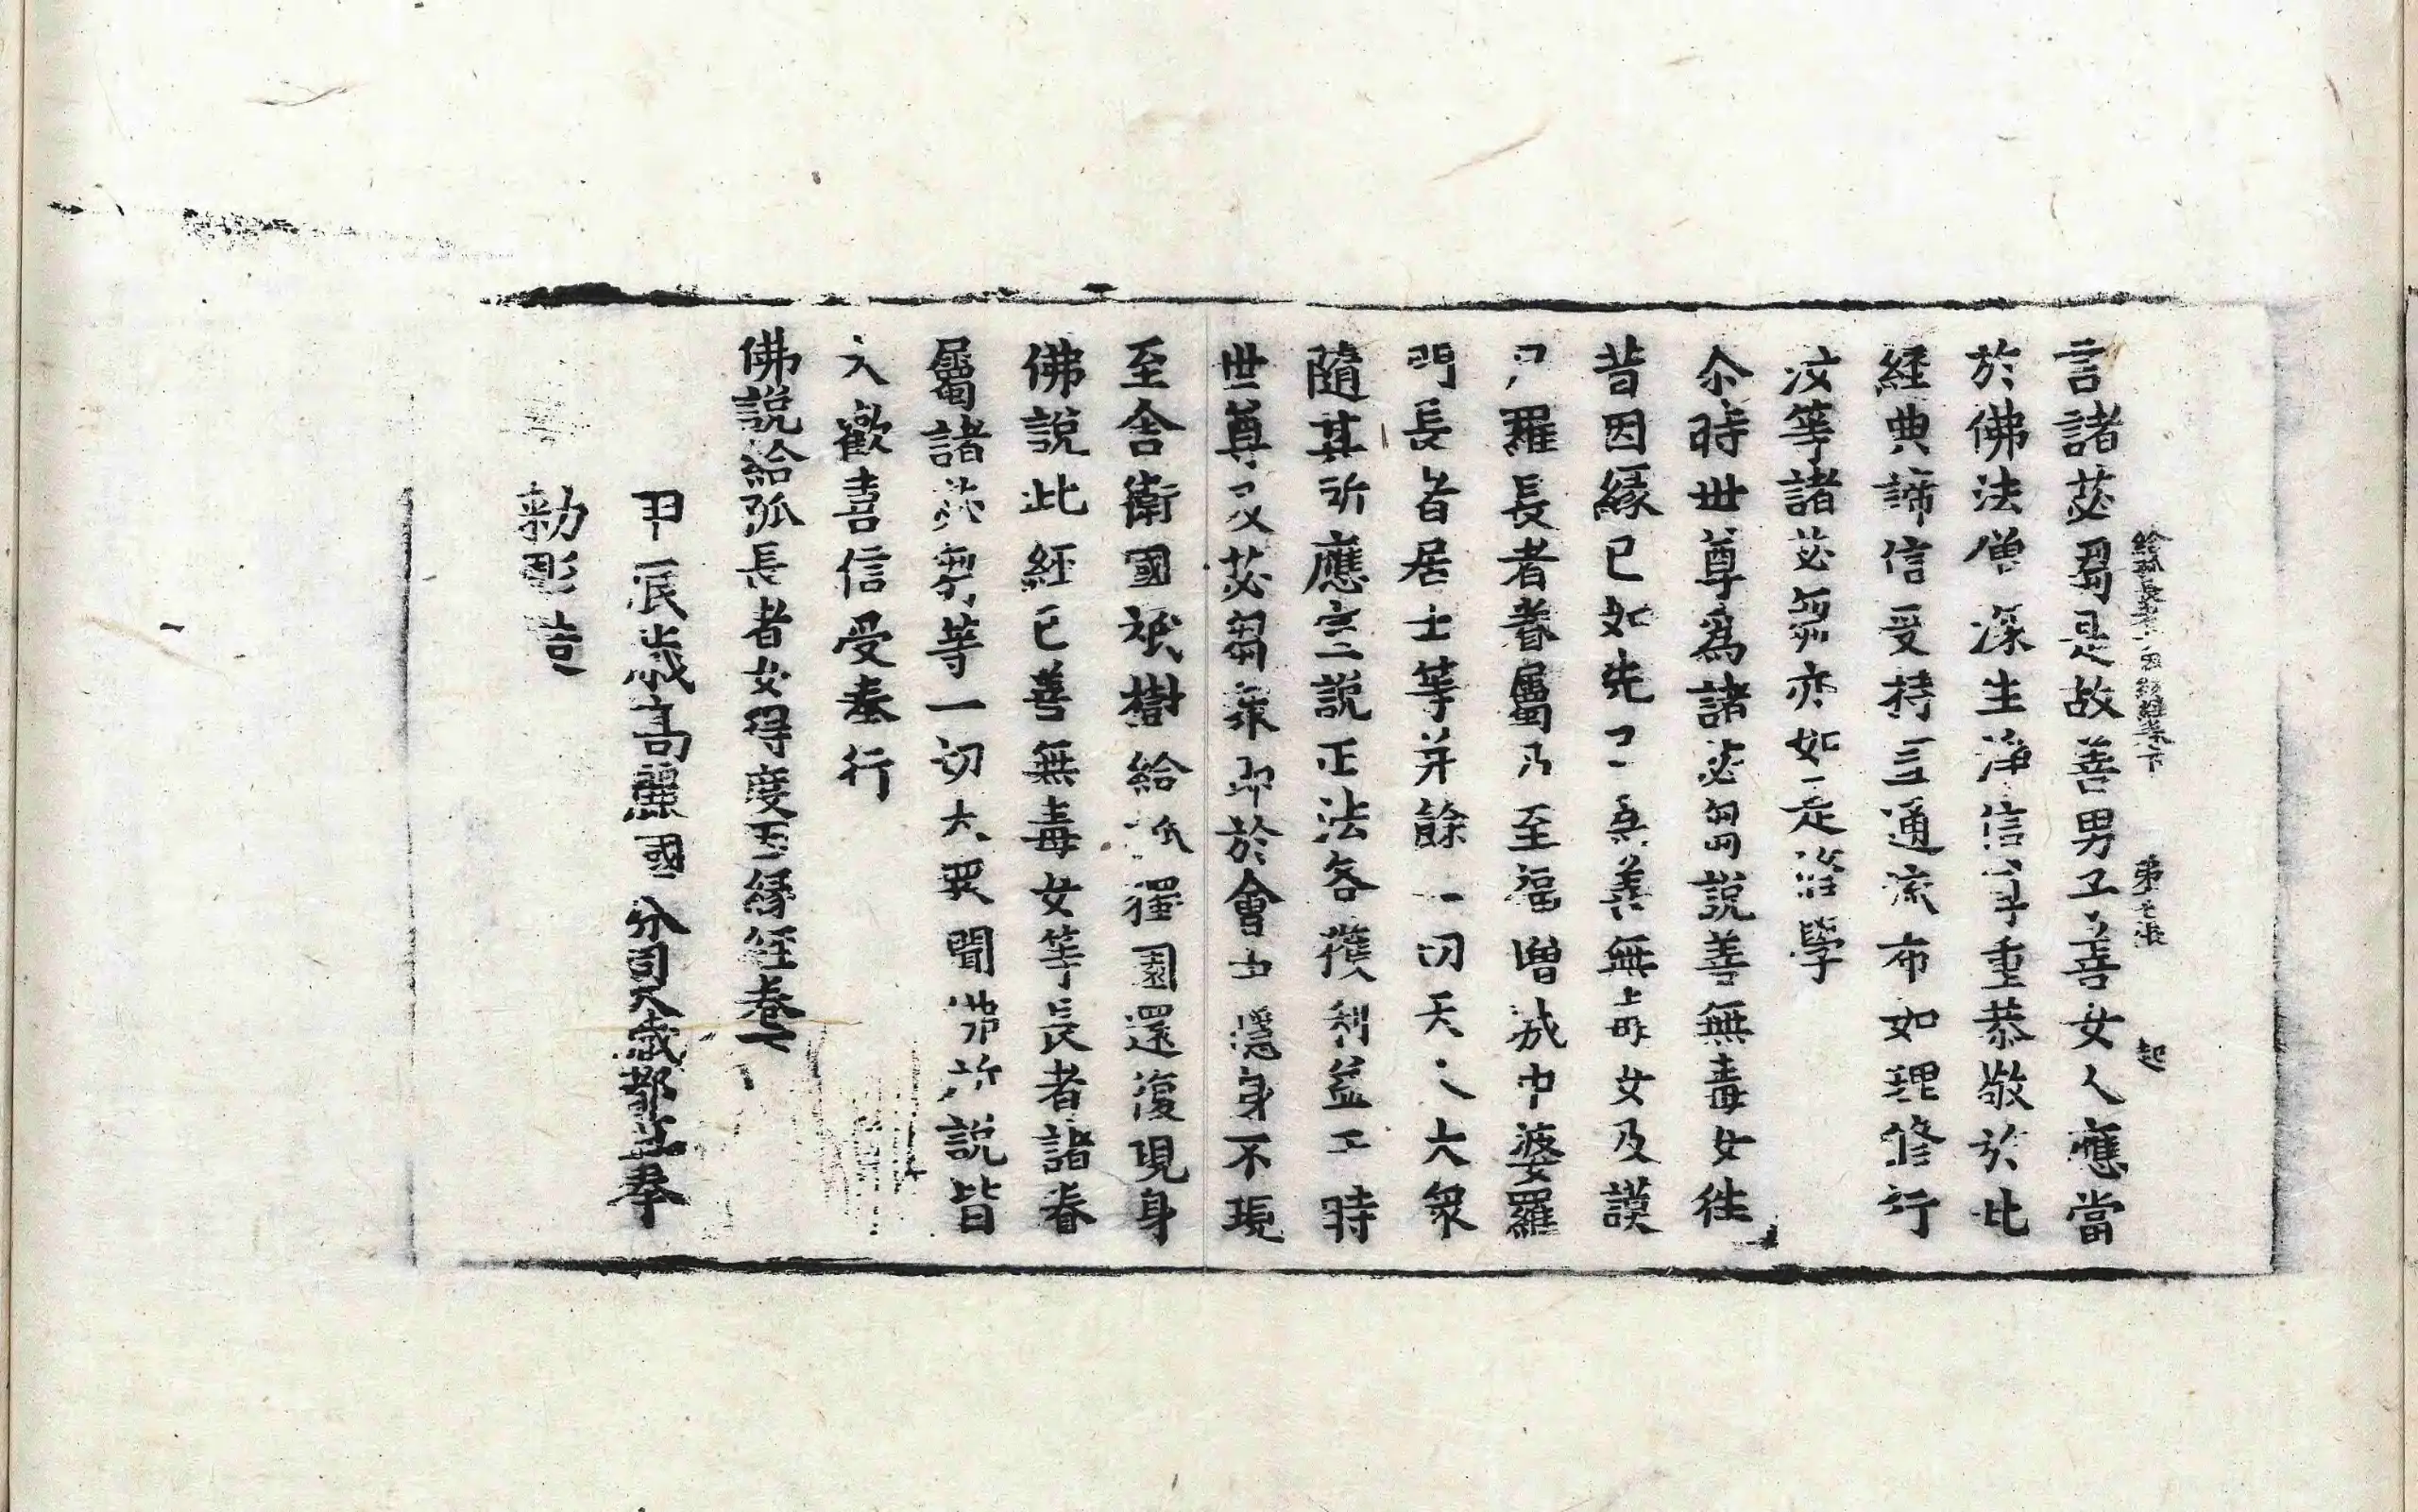 給孤長者女因緣經卷下 第七張 起
言諸苾芻是故善男子善女人應當
於佛法僧深生淨信尊重恭敬於此
經典諦信受持宣通流布如理修行
汝等諸苾芻亦如是當學
尒時世尊爲諸苾芻說善無毒女往
昔因緣已如先善無毒女及謨
尸羅長者眷屬乃至福增城中婆羅
門長者居士等并餘一切天人大衆
隨其所應宣說正法各獲利益時
世尊及苾芻衆即於會中隱身不現
至舍衛國祇樹給孤獨園還復現身
佛說此經已善無毒女等長者諸眷
屬諸苾芻等一切大衆聞佛所說皆
大歡喜信受奉行
佛說給孤長者女得度因緣經卷下
甲辰歲高麗國分司大藏都監奉
勅彫造